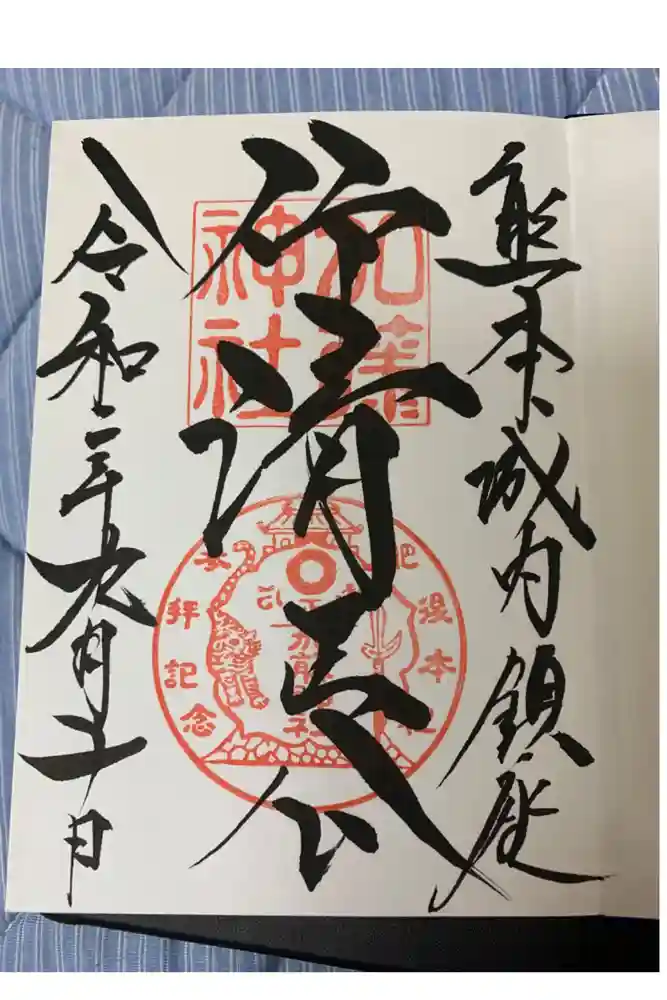 熊本城内鎮座
仰清正公
令和二年九月十一日
加藤
神社
肥後本社
参拝記念